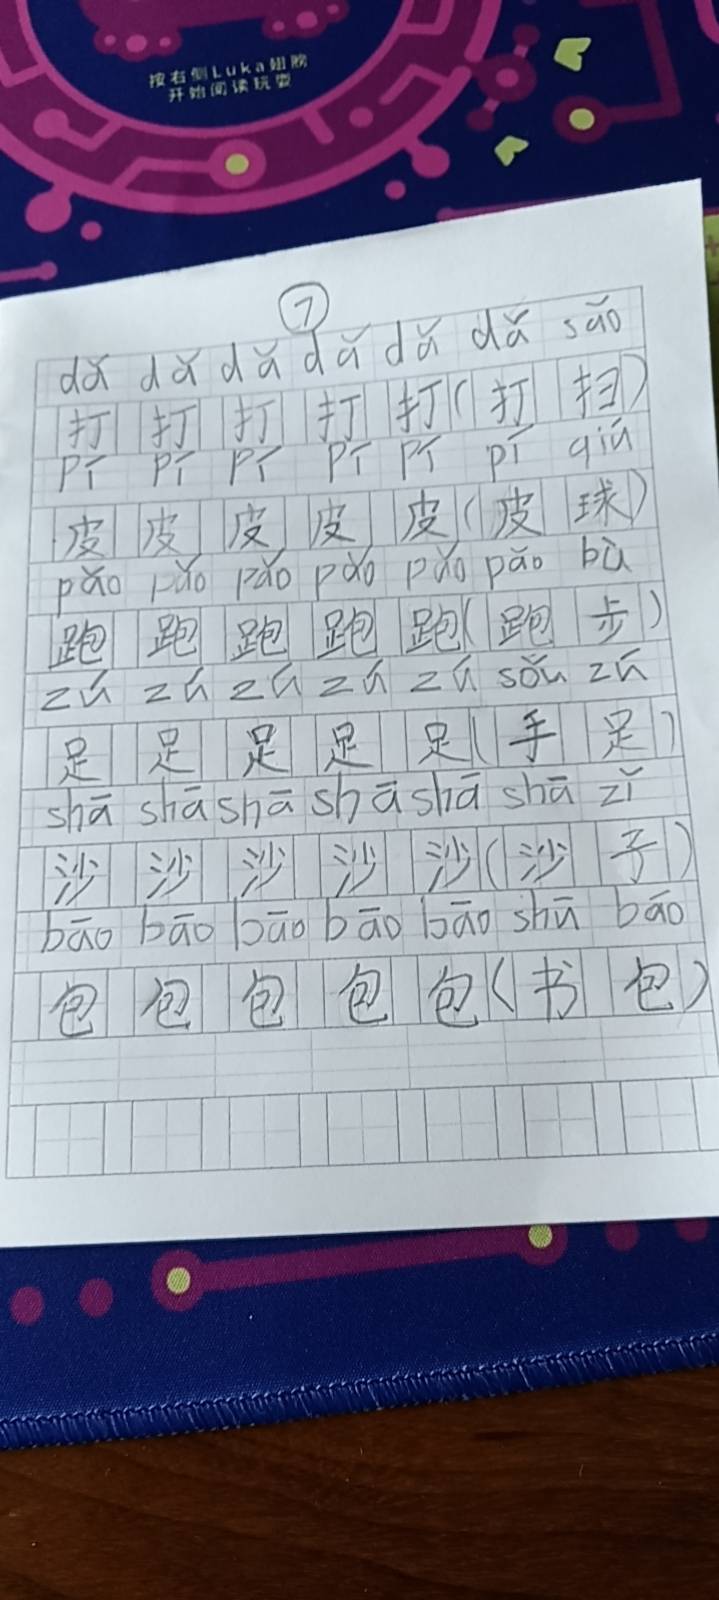 按右侧Luka翅膀
开始阅读玩耍
7
dǎ dǎ dǎ dǎ dǎ dǎ sǎo
打 打 打 打 打 ( 打 扫 )
pí pí pí pí pí pí qiú
皮 皮 皮 皮 皮 ( 皮 球 )
pǎo pǎo pǎo pǎo pǎo pǎo bù
跑 跑 跑 跑 跑 ( 跑 步 )
zú zú zú zú zú sǒu zú
足 足 足 足 足 ( 手 足 )
shā shā shā shā shā shā zǐ
沙 沙 沙 沙 沙 ( 沙 子 )
bāo bāo bāo bāo bāo shū bāo
包 包 包 包 包 ( 书 包 )